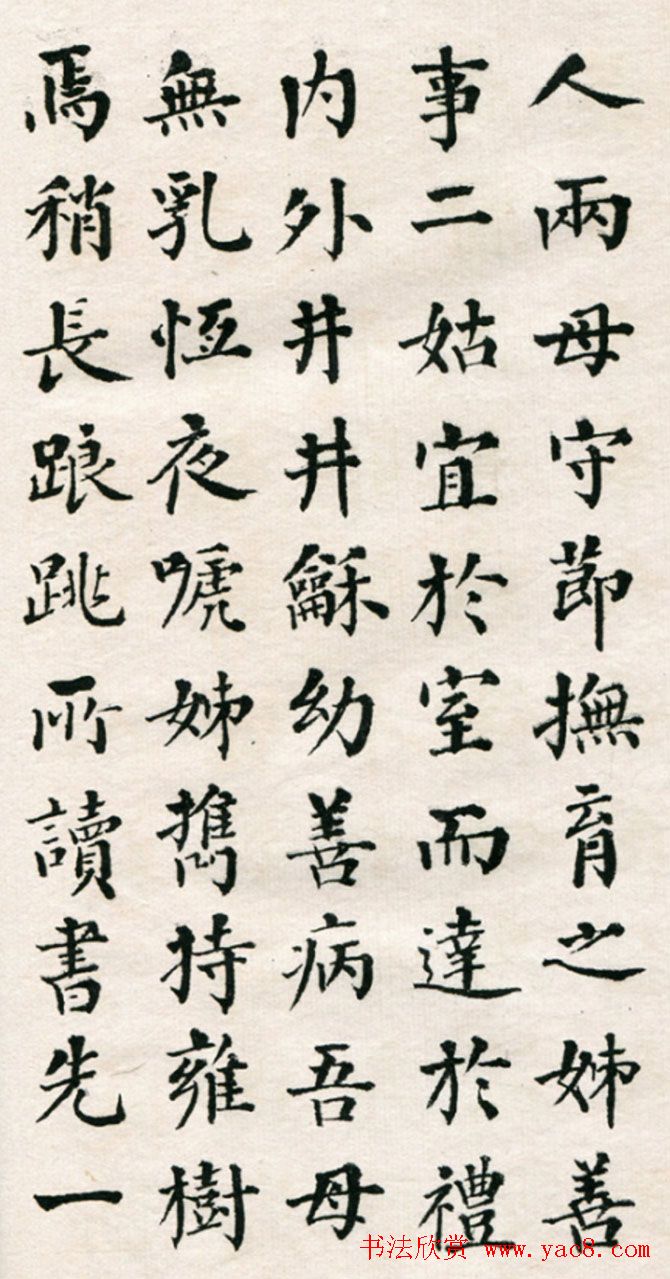 人兩母守節撫育之姊善
事二姑宜於室而達於禮
内外井井龢幼善病吾母
無乳恆夜嗁姊攜持雍樹
焉稍長踉跳所讀書先一
书法欣赏 www.yac8.com